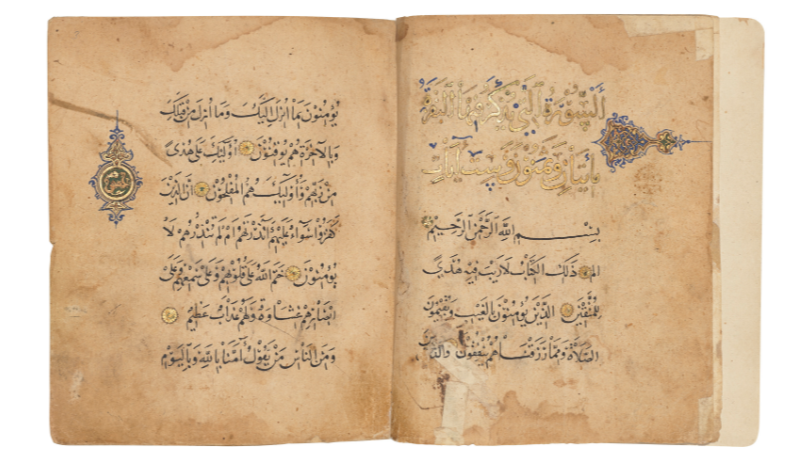 السورة التي تذكر فيها البقرة
مائتان وثمنون وست آيات
بسم الله الرحمن الرحيم
الم ذلك الكتاب لا ريب فيه هدى
للمتقين الذين يؤمنون بالغيب ويقيمون
الصلاة ومما رزقناهم ينفقون والذين
يؤمنون بما انزل اليك وما انزل من قبلك
وبالآخرة هم يوقنون اولئك على هدى
من ربهم واولئك هم المفلحون ان الذين
كفروا سواء عليهم أنذرتهم ام لم تنذرهم لا
يؤمنون ختم الله على قلوبهم وعلى سمعهم وعلى
ابصارهم غشاوة ولهم عذاب عظيم
ومن الناس من يقول آمنا بالله وباليوم